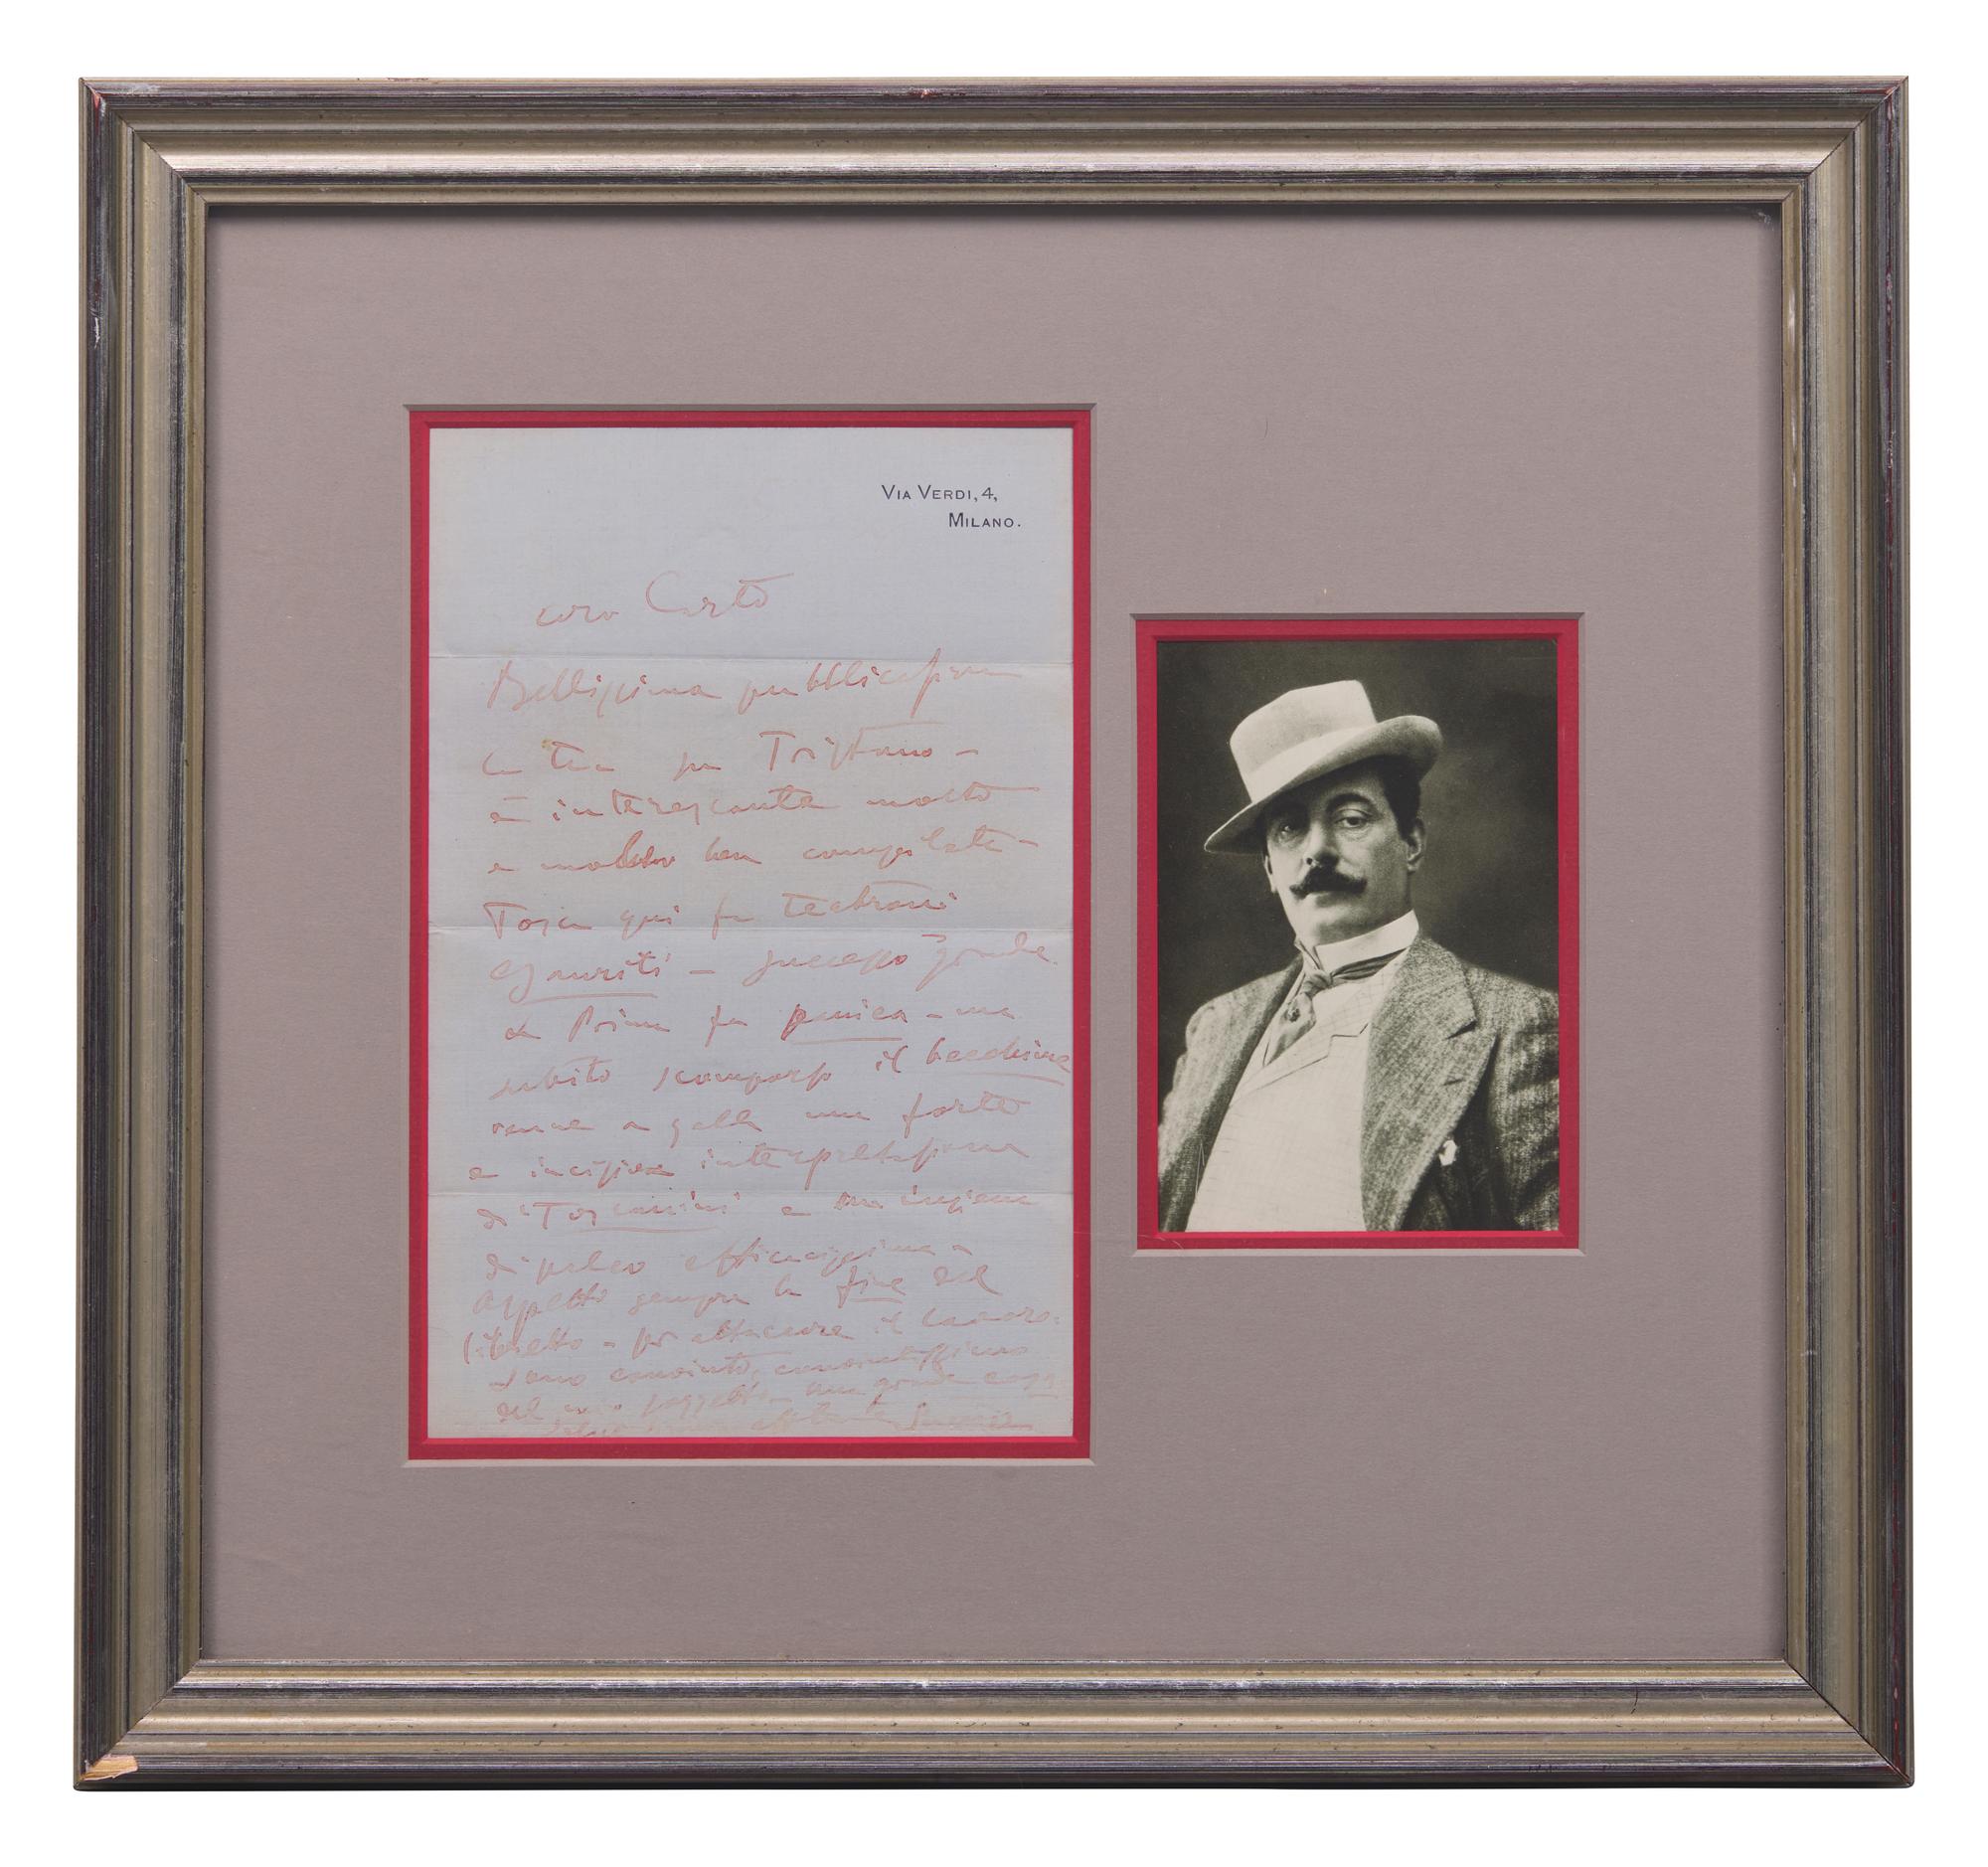 VIA VERDI, 4,
MILANO.
caro
Bellissima pubblicazione
la tua per Tristano –
è interessante molto
e molto ben compilata –
Tosca qui fa teatroni
esauriti – successo grande
La Prima fu panica – ma
subito scomparso il bacchino
venne a galla una forte
e incisiva interpretazione
di Toscanini e un insieme
di palco efficacissimo –
Aspetto sempre la fine del
libretto – per attaccare il lavoro.
sono convinto, convintissimo
del mio soggetto – una grande cosa